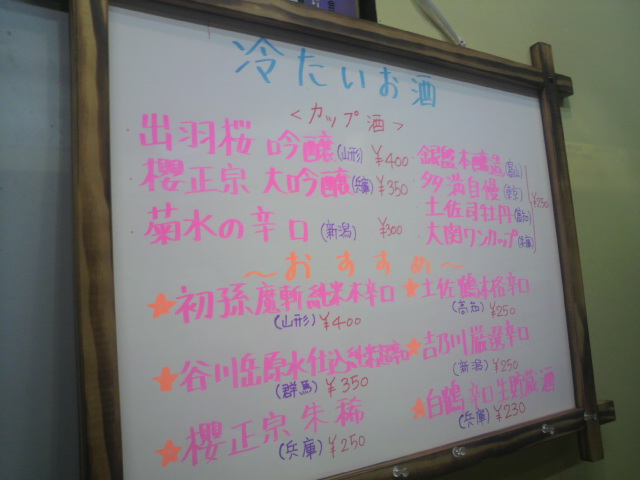 冷たいお酒
<カップ酒>
出羽桜 吟醸(山形) ¥400
櫻正宗 大吟醸(兵庫) ¥350
菊水の辛口(新潟) ¥300
銀盤本醸造(富山)
多満自慢(東京)
土佐司牡丹(高知)
大関ワンカップ(兵庫)
¥250
～おすすめ～
★初孫魔斬純米本辛口
(山形) ¥400
★谷川岳原水仕込純米超辛口
(群馬) ¥350
★櫻正宗 朱稀
(兵庫) ¥250
★土佐鶴本格辛口
(高知) ¥250
★吉乃川厳選辛口
(新潟) ¥250
★白鶴辛口生貯蔵酒
(兵庫) ¥230